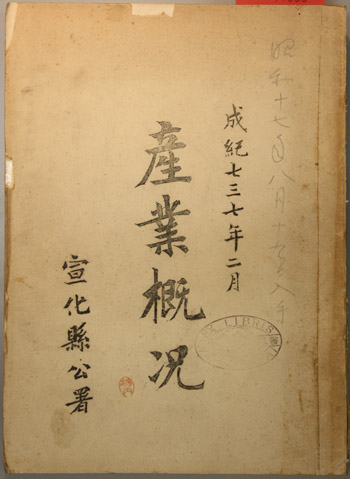 昭和十七年八月十五日入手
成紀七三七年二月
產業概況
宣化縣公署
EX LIBRIS